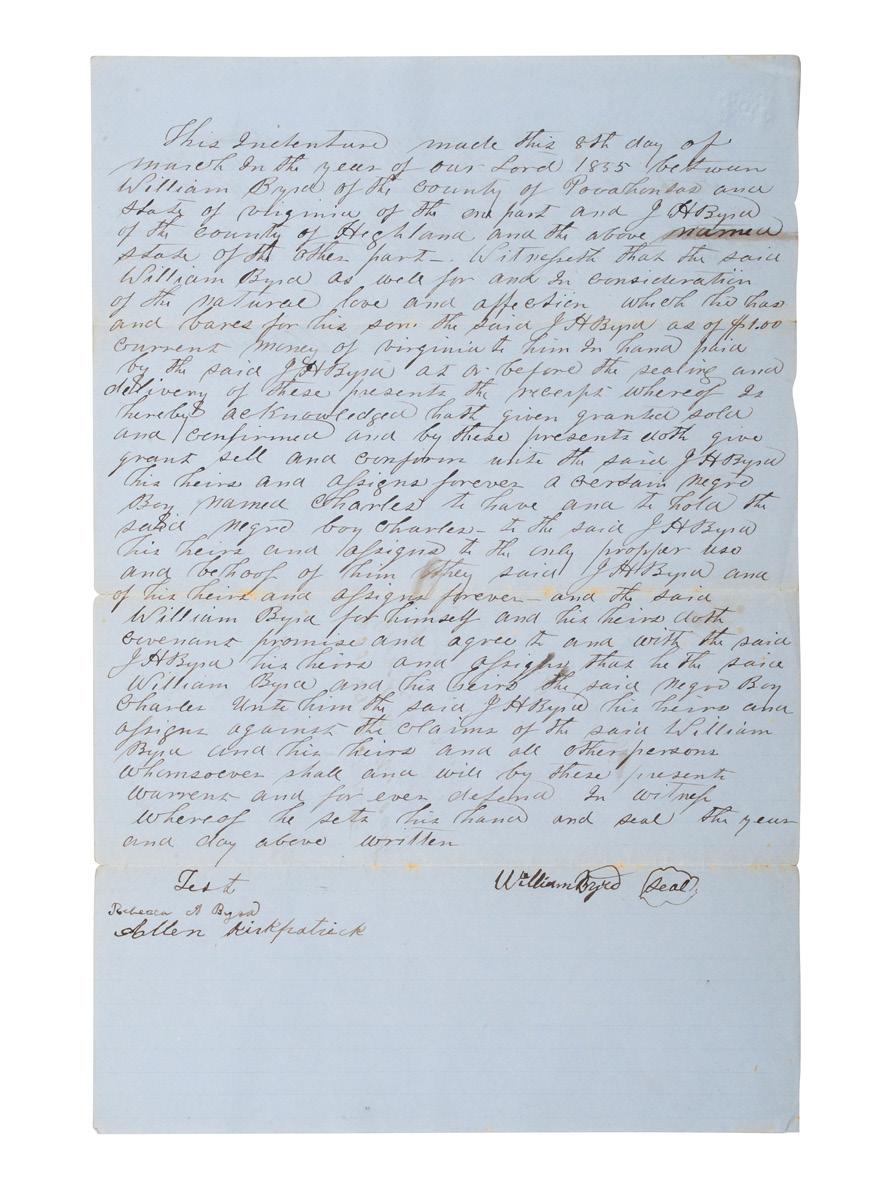 This Indenture made this 8th day of
march In the year of our Lord 1855 between
William Byrd of the county of Pocahontas and
state of virginia of the one part and J H Byrd
of the county of Highland and the above named
state of the other part - Witnesseth that the said
William Byrd as well for and In consideration
of the natural love and affection which he has
and bares for his son the said J H Byrd as of $1.00
current money of virginia to him In hand paid
by the said J H Byrd at or before the sealing and
delivery of these presents the receipt whereof Is
hereby acknowledged hath given granted sold
and confirmed and by these presents doth give
grant sell and confirm unto the said J H Byrd
his heirs and assigns forever a certain negro
Boy named Charles to have and to hold the
said negro boy Charles - to the said J H Byrd
his heirs and assigns to the only propper use
and behoof of him they said J H Byrd and
of his heirs and assigns forever and the said
William Byrd for himself and his heirs doth
covenant promise and agree to and with the said
J H Byrd his heirs and assigns that he the said
William Byrd and his heirs the said negro Boy
Charles unto him the said J H Byrd his heirs and
assigns against the claims of the said William
Byrd and his heirs and all other persons
whomsoever shall and will by these presents
warrent and for ever defend In witness
whereof he sets his hand and seal the year
and day above written
Test William Byrd Seal
Rebecca A Byrd
Allen Kirkpatrick